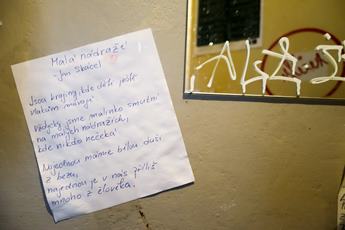 Malá nádraží
Jan Skácel
Jsou krajiny, kde děti ještě
vlakům mávají
Vždycky jsme malinko smutní
na malých nádražích,
kde nikdo nečeká
Najednou máme bílou duši
z bezu,
najednou je v nás příliš
mnoho z člověka.